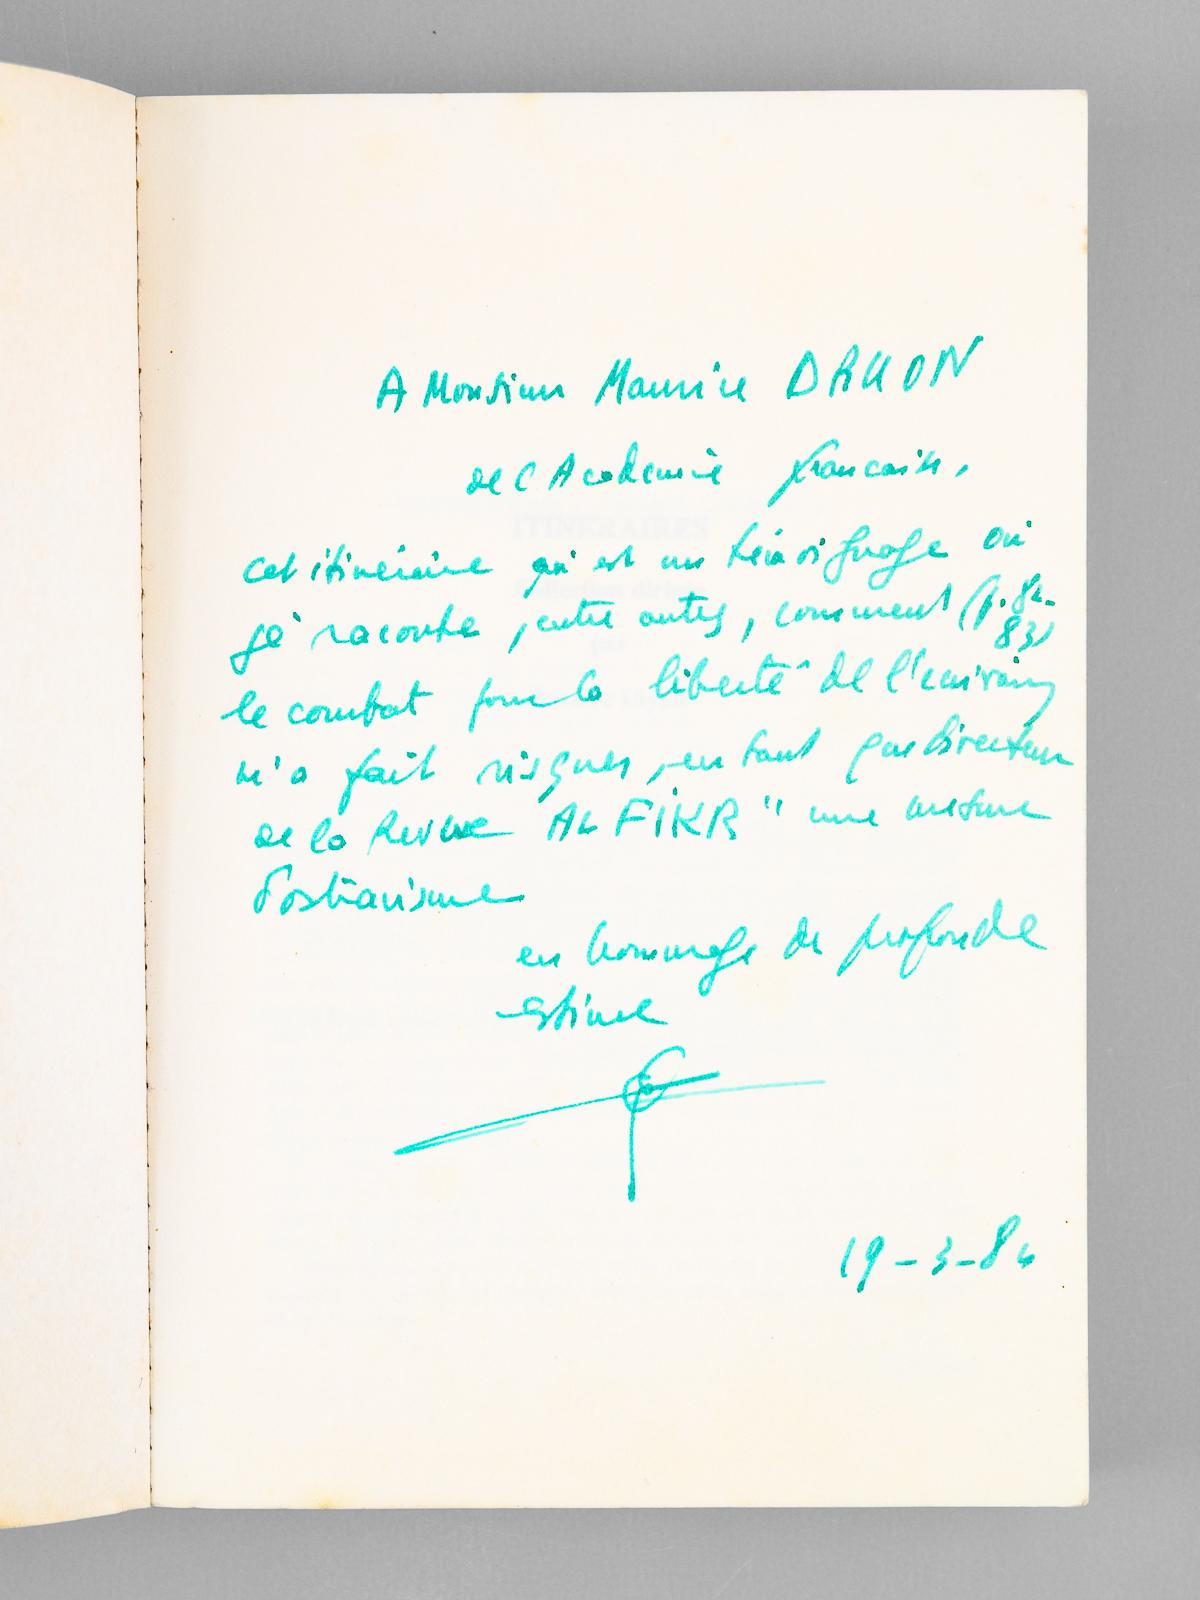 A Monsieur Maurice DRUON
de l'Academie francaise,
cet itinéraire qui est un témoignage où
je raconte, entre autres, comment (p. 82-
83)
le combat pour la liberté de l'écrivain
m'a fait risquer, en tant que directeur
de la Revue AL FIKR" une mesure
d'ostracisme
en hommage de profonde
estime
19-3-84
ITINERAIRES
Collection dirigée
par